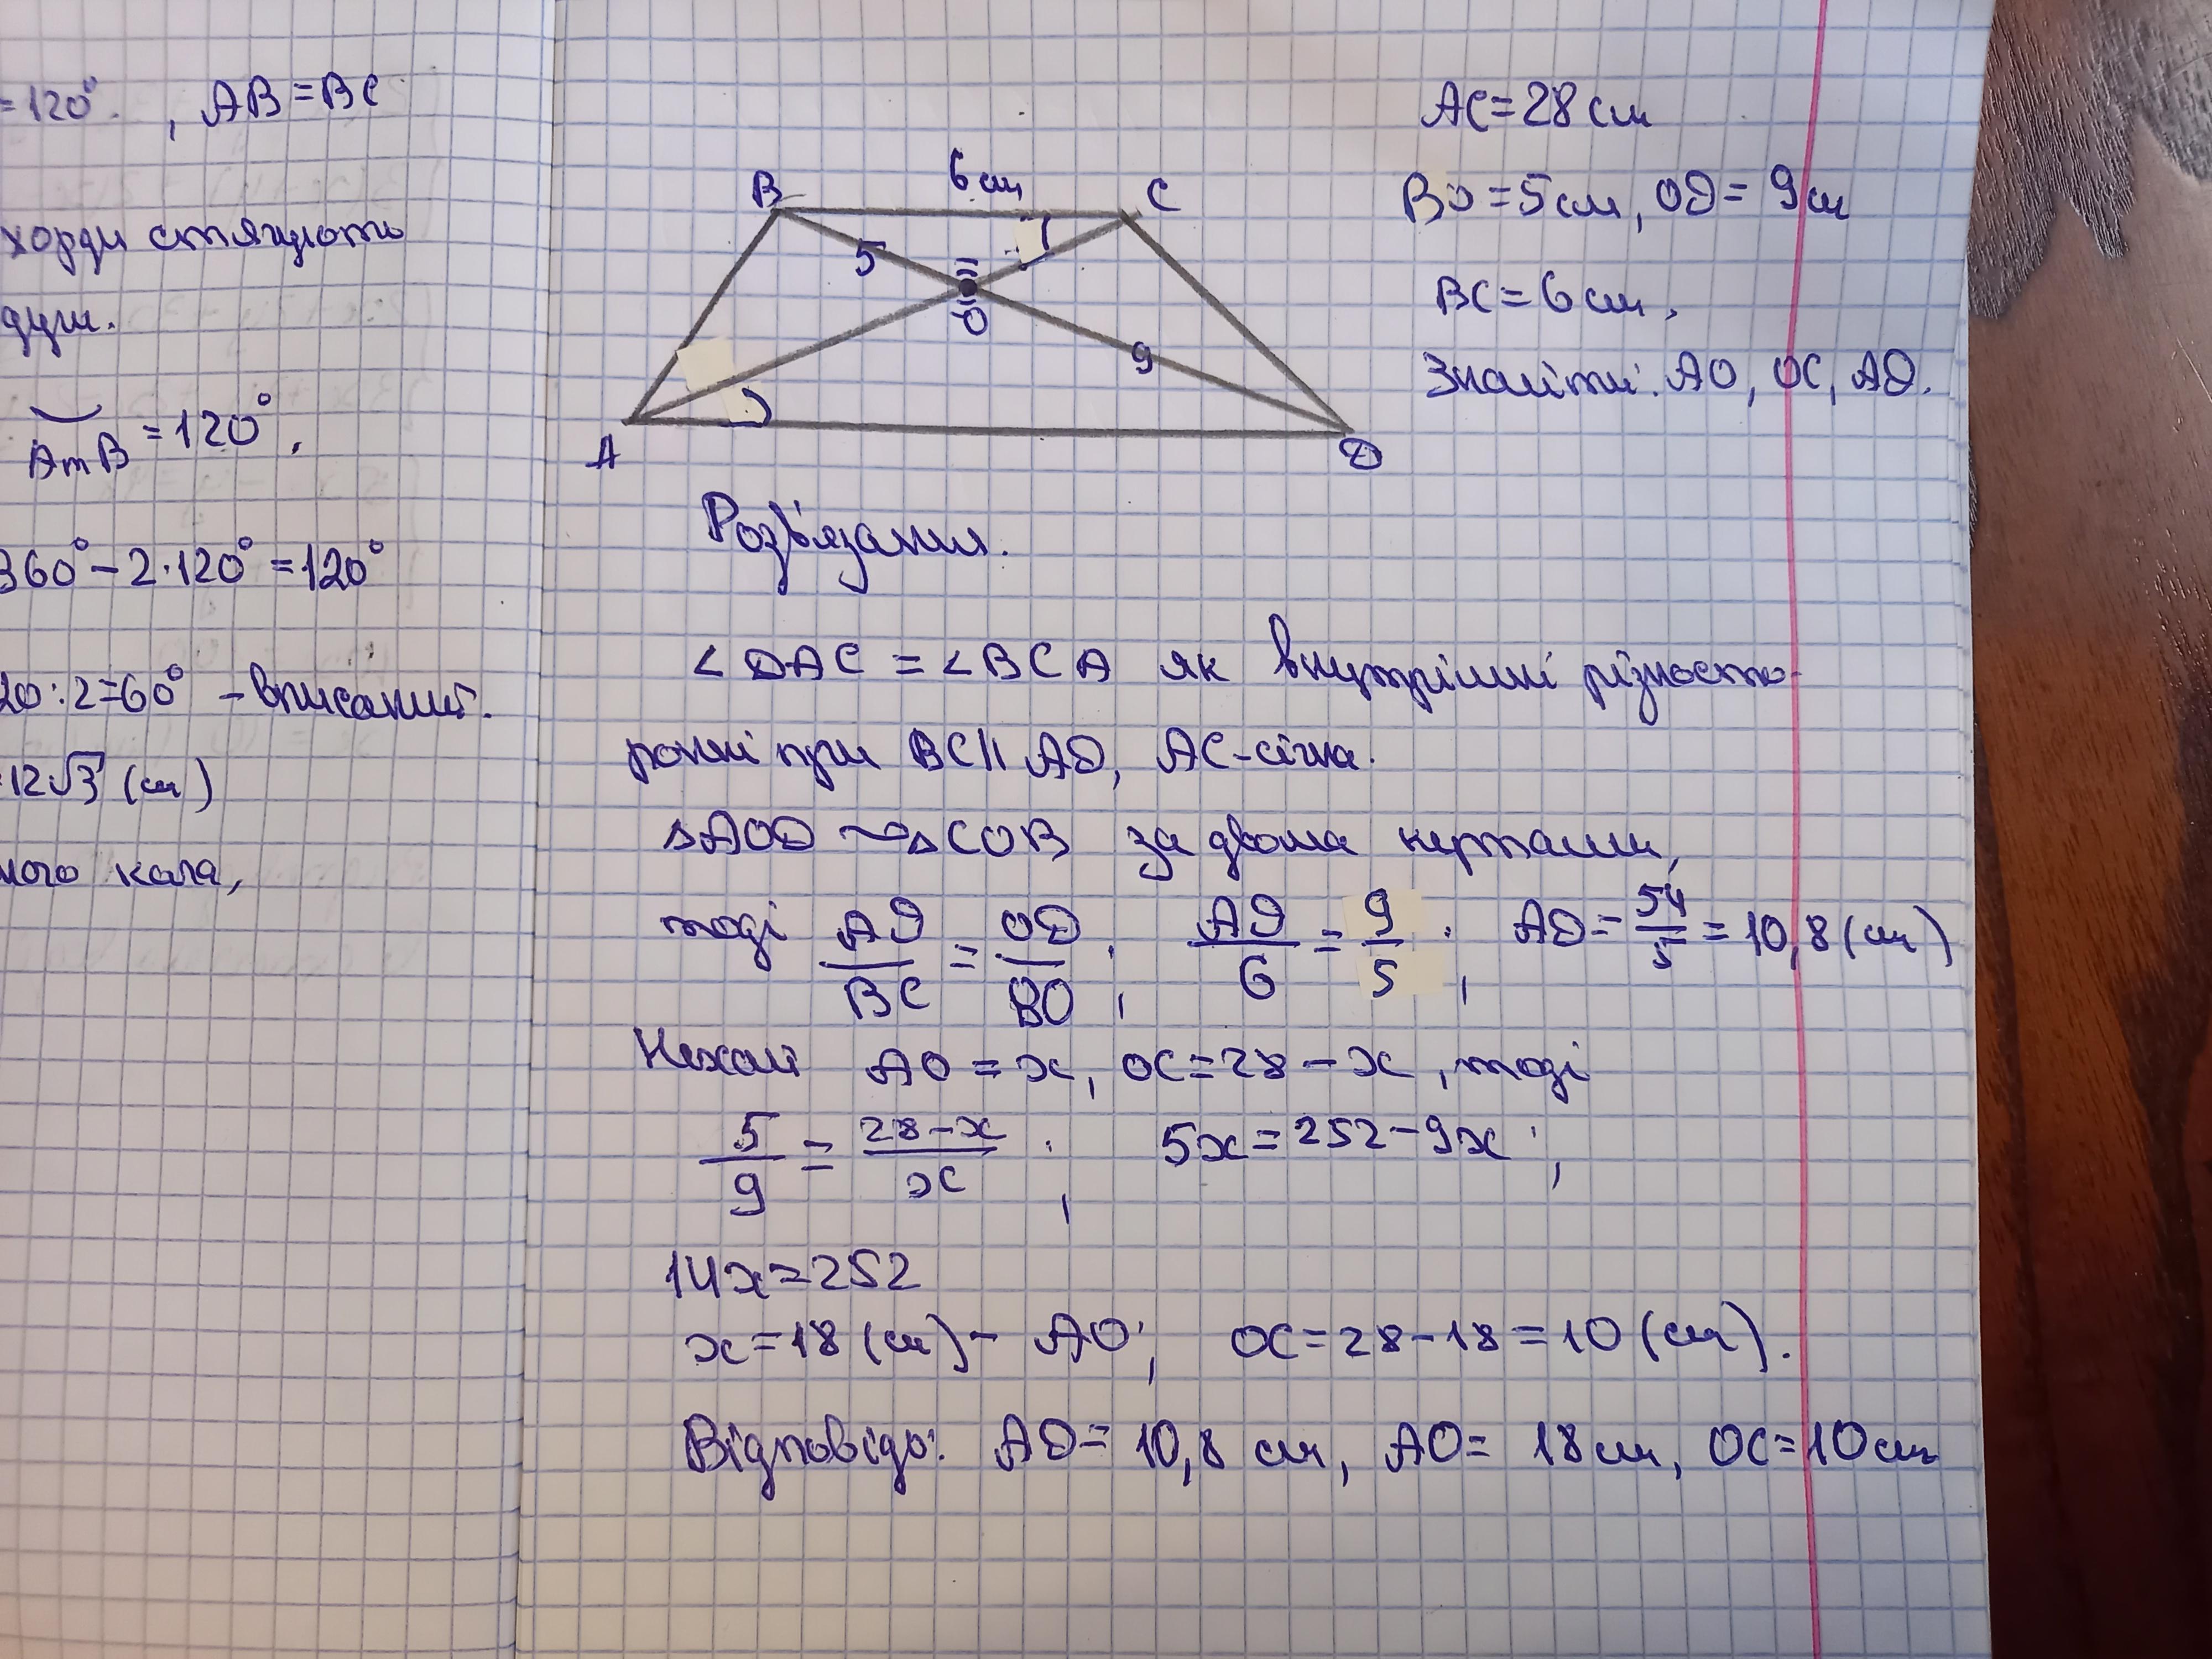 =120°. , AB=BC
хорди стягують
дуги.
AmB =120°,
360°-2·120°=120°
20:2=60° - вписаний.
12√3 (см)
ного кола,
AC=28см
BO=5см, OD=9см
BC=6см,
Знайти: AO, OC, AD.
B 6см C
5
O
9
A D
Розв'язання.
∠DAC = ∠BCA як внутрішні різносто-
ронні при BC || AD, AC-січна.
△AOD ~ △COB за двома кутами,
тоді AD/BC = OD/BO; AD/6 = 9/5; AD = 54/5 = 10,8 (см)
Нехай AO = x, OC=28-x, тоді
5/9 = 28-x/x; 5x=252-9x;
14x=252
x=18 (см) - AO; OC=28-18=10 (см).
Відповідь: AD= 10,8 см, AO= 18см, OC=10см